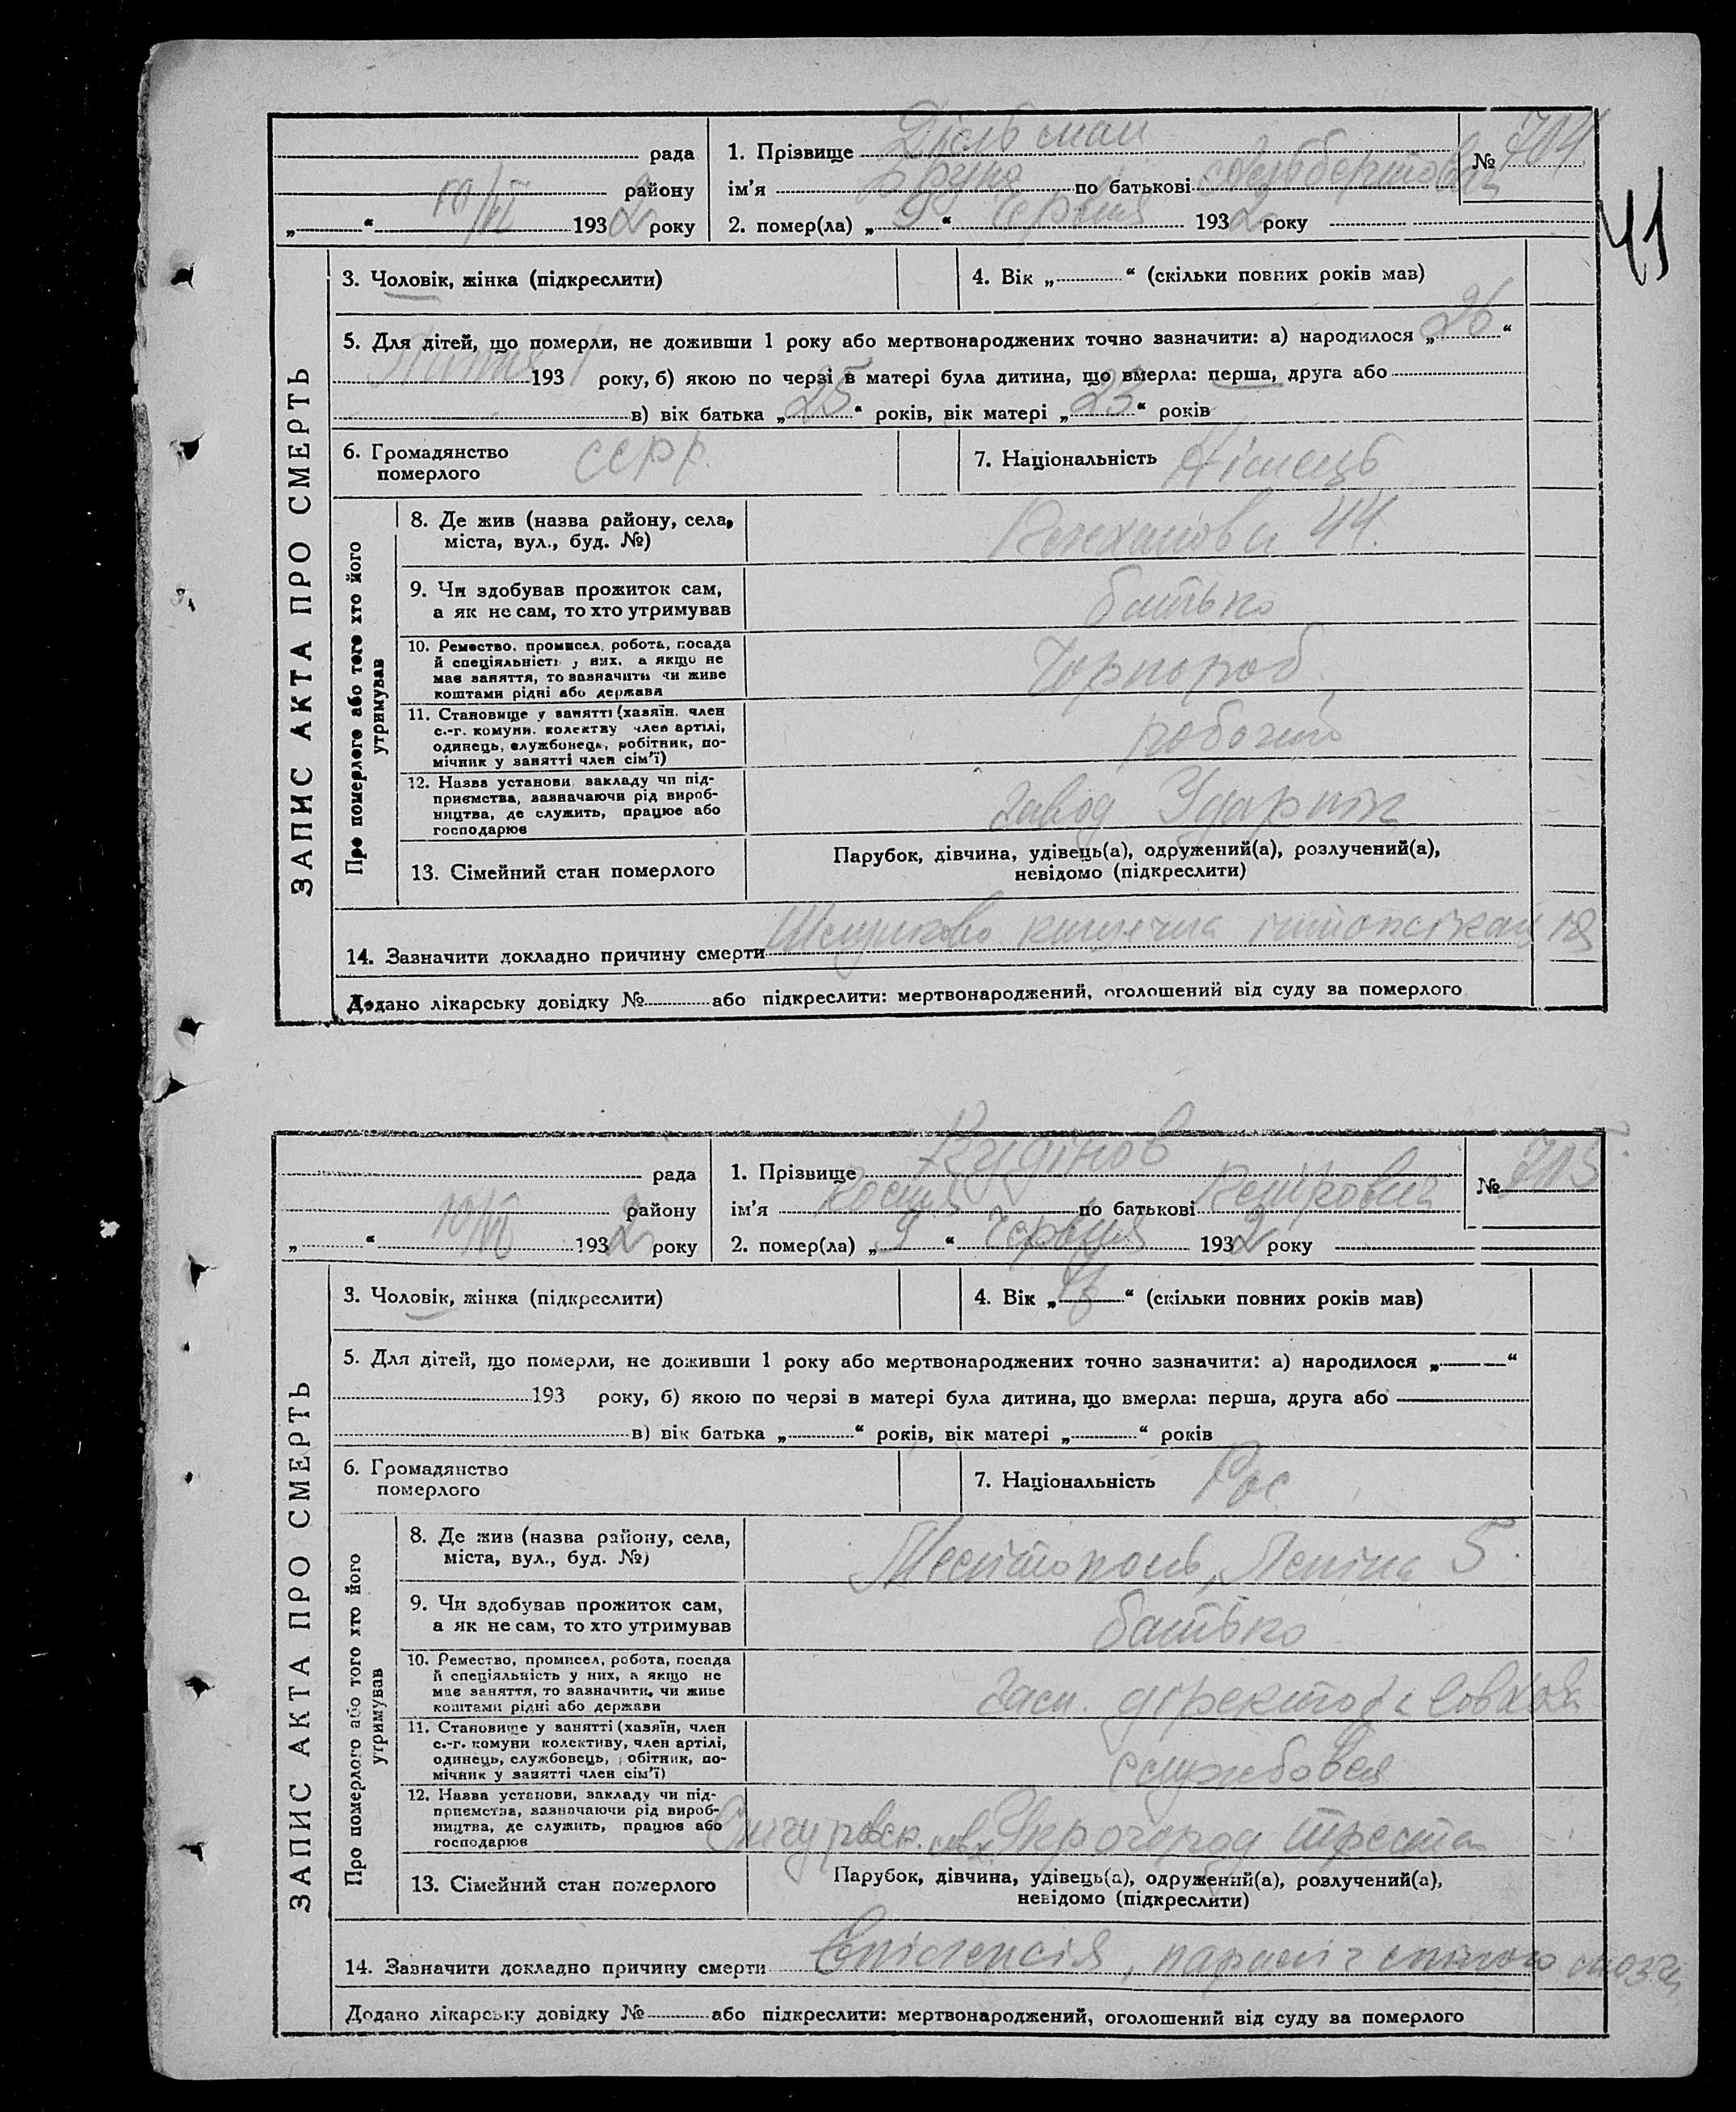 41
рада
району
10/VI 1932 року
1. Прізвище Дісльман
ім’я Бруно по батькові
№ 704
2. помер(ла) „ 9 “ червня 1932 року
ЗАПИС АКТА ПРО СМЕРТЬ
3. Чоловік, жінка (підкреслити)
4. Вік „ “ (скільки повних років мав)
5. Для дітей, що померли, не доживши 1 року або мертвонароджених точно зазначити: а) народилося „ 26 “
193 1 року, б) якою по черзі в матері була дитина, що вмерла: перша, друга або
в) вік батька „ 25 “ років, вік матері „ 23 “ років
6. Громадянство
померлого
СССР.
7. Національність Німець
Про померлого або того хто його
утримував
8. Де жив (назва району, села,
міста, вул., буд. №)
44.
9. Чи здобував прожиток сам,
а як не сам, то хто утримував
батько
10. Ремество, промисел, робота, посада
й спеціяльність у них, а якщо не
має заняття, то зазначить чи живе
коштами рідні або держави
Чорнороб
11. Становище у занятті (хазяїн, член
с.-г. комуни, колективу член артілі,
одинець, службовець, робітник, по-
мічник у занятті член сім’ї)
робочий
12. Назва установи, закладу чи під-
приємства, зазначаючи рід вироб-
ництва, де служить, працює або
господарює
завод Ударник
13. Сімейний стан померлого
Парубок, дівчина, удівець(а), одружений(а), розлучений(а),
невідомо (підкреслити)
14. Зазначити докладно причину смерти Шлунково кишечна інтоксікація
Додано лікарську довідку № або підкреслити: мертвонароджений, оголошений від суду за померлого
рада
району
10/VI 1932 року
1. Прізвище Кудінов
ім’я Костя по батькові
№ 705
2. помер(ла) „ 9 “ червня 1932 року
ЗАПИС АКТА ПРО СМЕРТЬ
3. Чоловік, жінка (підкреслити)
4. Вік „ “ (скільки повних років мав)
5. Для дітей, що померли, не доживши 1 року або мертвонароджених точно зазначити: а) народилося „ “
193 року, б) якою по черзі в матері була дитина, що вмерла: перша, друга або
в) вік батька „ “ років, вік матері „ “ років
6. Громадянство
померлого
7. Національність Рос
Про померлого або того хто його
утримував
8. Де жив (назва району, села,
міста, вул., буд. №)
Леніна 5.
9. Чи здобував прожиток сам,
а як не сам, то хто утримував
батько
10. Ремество, промисел, робота, посада
й спеціяльність у них, а якщо не
має заняття, то зазначити, чи живе
коштами рідні або держави
заст. діректора Совхоза
11. Становище у занятті (хазяїн, член
с.-г. комуни колективу, член артілі,
одинець, службовець, робітник, по-
мічник у занятті член сім’ї)
службовец
12. Назва установи, закладу чи під-
приємства, зазначаючи рід вироб-
ництва, де служить, працює або
господарює
совх. треста
13. Сімейний стан померлого
Парубок, дівчина, удівець(а), одружений(а), розлучений(а),
невідомо (підкреслити)
14. Зазначити докладно причину смерти Епілепсія, параліч мозга
Додано лікарську довідку № або підкреслити: мертвонароджений, оголошений від суду за померлого